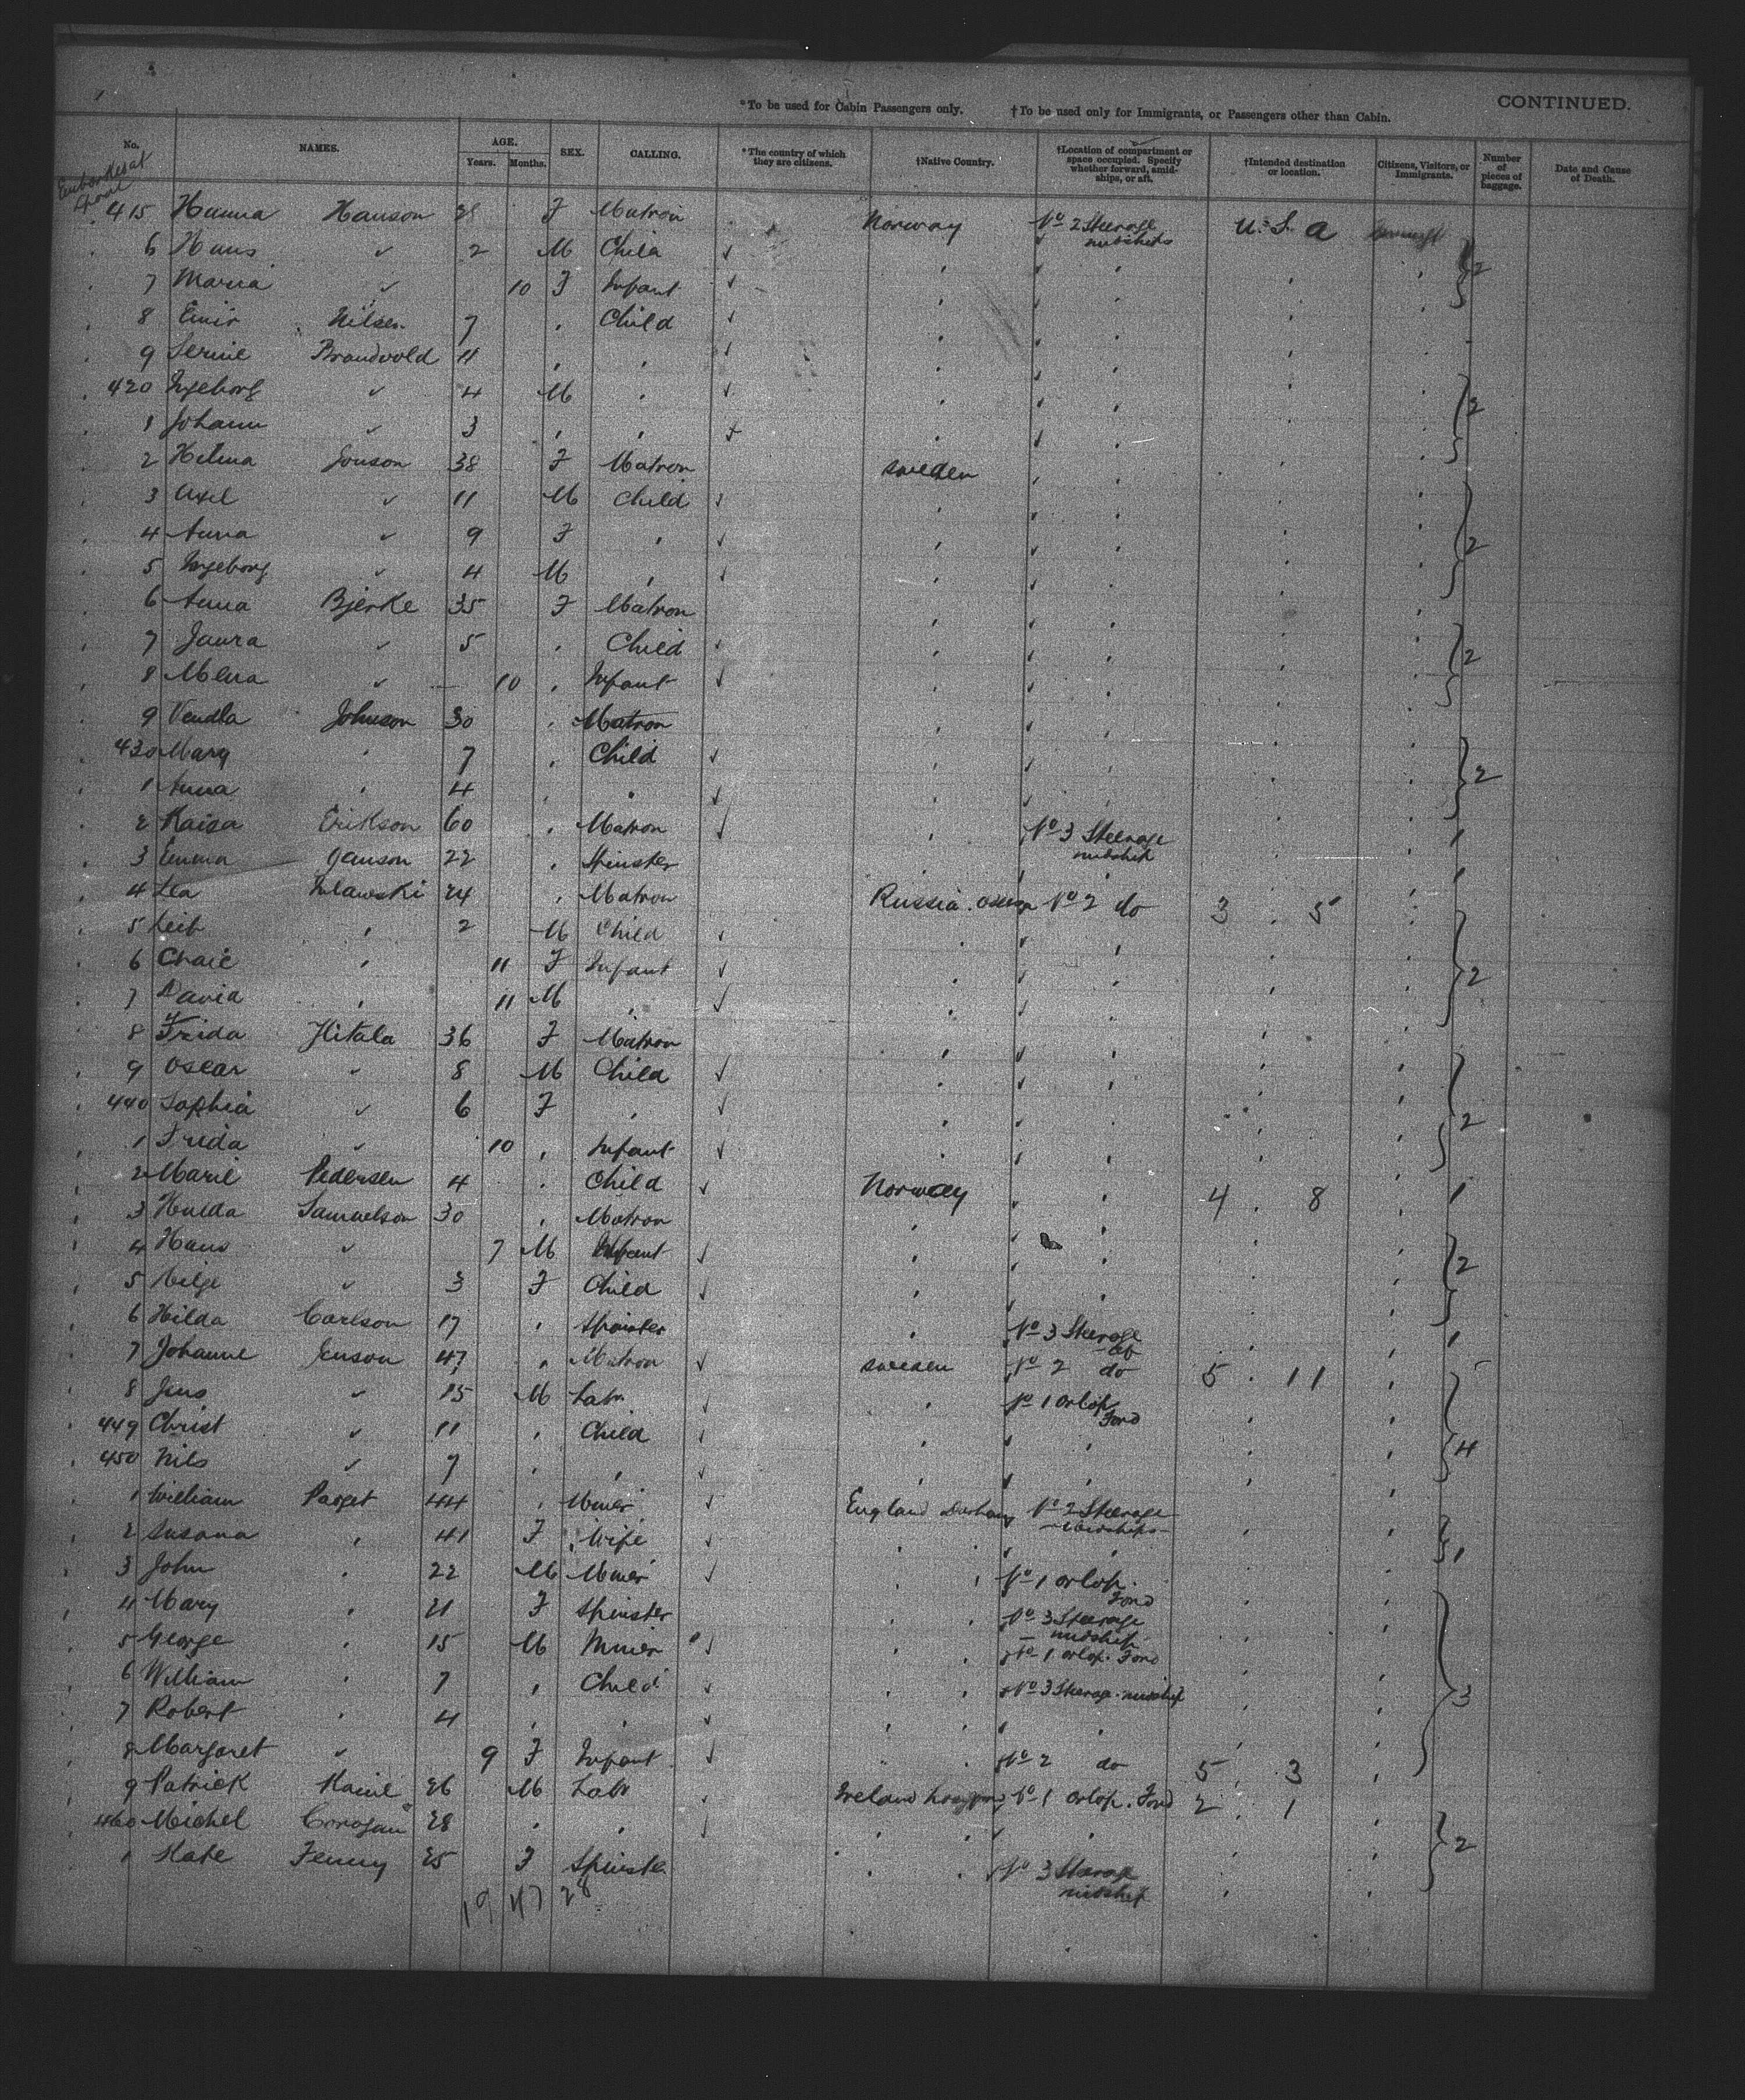 CONTINUED.
*To be used for Cabin Passengers only. †To be used only for Immigrants, or Passengers other than Cabin.
No. NAMES. AGE. Years. Months. SEX. CALLING. *The country of which they are citizens. †Native Country. †Location of compartment or space occupied. Specify whether forward, amidships, or aft. †Intended destination or location. Citizens, Visitors, or Immigrants. Number of pieces of baggage. Date and Cause of Death.
Embarked at
415 Hanna Hanson F Matron Norway No 2 Steerage midships U.S.A
6 Hans ✓ 2 M Child ✓ 2
7 Maria ✓ 10 F Infant ✓
8 Nilsen 7 Child ✓
9 Serine Brandvold 11
420 Ingeborg ✓ 4 M ✓ 2
1 Johann ✓ 3
2 Helma Jonson 38 F Matron Sweden
3 Axel ✓ 11 M Child ✓
4 Anna ✓ 9 F ✓ 2
5 Ingeborg ✓ 4 M ✓
6 Anna Bjerke 35 F Matron
7 Jaura ✓ 5 Child ✓ 2
8 Mena ✓ 10 Infant ✓
9 Vendla Johnson 30 Matron
430 Mary 7 Child ✓ 2
1 Anna 4 ✓
2 Kaisa Erikson 60 Matron ✓ No 3 Steerage midship 1
3 Emma Janson 22 Spinster 1
4 Lea 24 Matron Russia No 2 do 3 . 5
5 Leib 2 M Child
6 Chaie 11 F Infant ✓ 2
7 David 11 M ✓
8 Frida Hitala 36 F Matron
9 Oscar ✓ 8 M Child ✓
440 Sophia ✓ 6 F ✓ 2
1 Frida ✓ 10 Infant ✓
2 Marie Pedersen 4 Child ✓ Norway 4 . 8 1
3 Hulda Samuelson 30 Matron
4 Hans ✓ 7 M Infant ✓ 2
5 ✓ 3 F Child ✓
6 Hilda Carlson 17 Spinster No 3 Steerage 1
7 Johanne Jenson 47 Matron ✓ Sweden No 2 do 5 . 11
8 Jens ✓ 15 M Labr ✓ No 1 Orlop Ford
449 Christ ✓ 11 Child ✓ 4
450 Nils ✓ 7 ✓
1 William Paget 44 Miner ✓ England Durham No 2 Steerage midships
2 Susana 41 F Wife ✓ 1
3 John 22 M Miner ✓ No 1 Orlop. Ford
4 Mary 21 F Spinster No 3 Steerage midship
5 George 15 M Miner ✓ No 1 Orlop. Ford
6 William 7 Child ✓ No 3 Steerage midship 3
7 Robert 4 ✓
8 Margaret ✓ 9 F Infant ✓ No 2 do 5 . 3
9 Patrick 26 M Labr Ireland No 1 Orlop. Ford 2 . 1
460 Michel 28 2
1 Kate Feeny 25 F Spinster No 3 Steerage midship
19 47 28